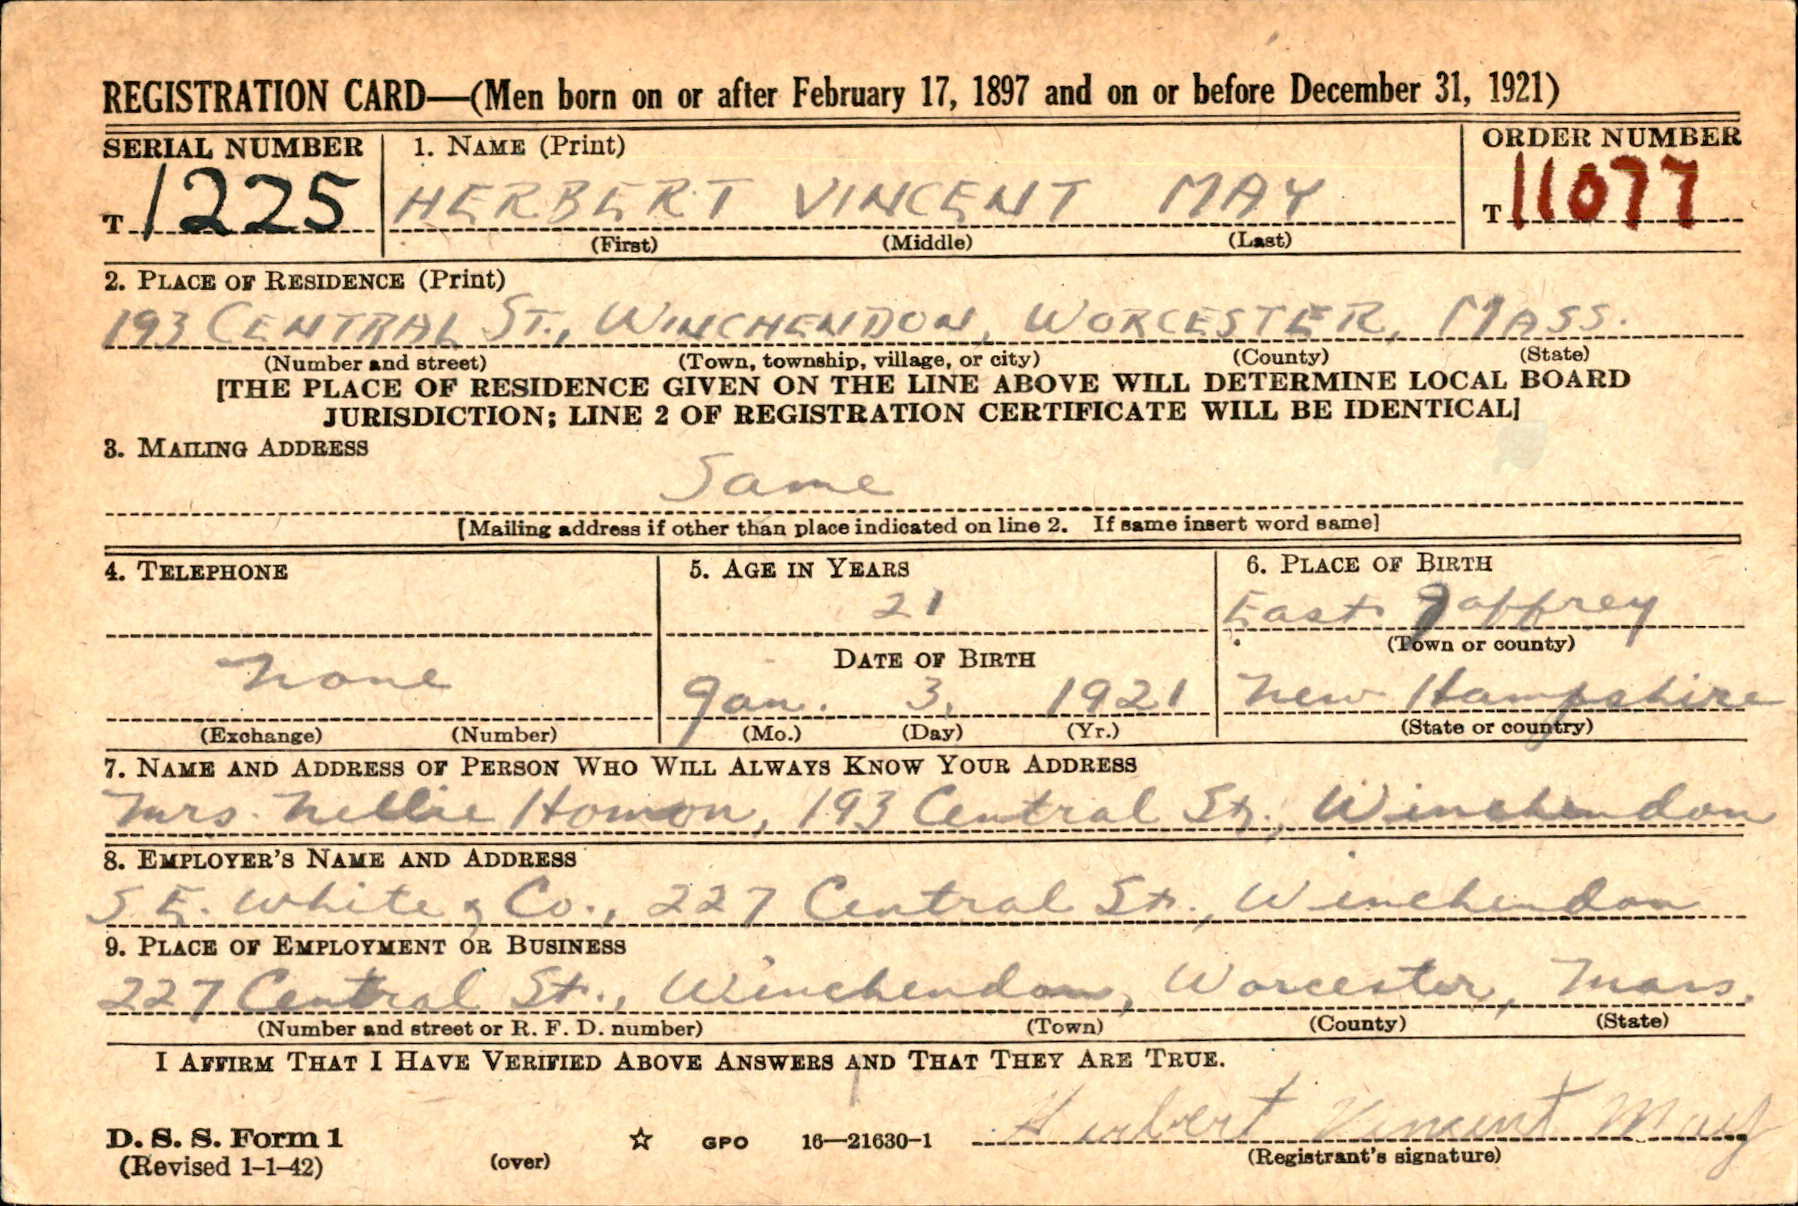 REGISTRATION CARD—(Men born on or after February 17, 1897 and on or before December 31, 1921)
SERIAL NUMBER 1. NAME (Print) ORDER NUMBER
T 1225 HERBERT VINCENT MAY T 11077
(First) (Middle) (Last)
2. PLACE OF RESIDENCE (Print)
193 CENTRAL ST., WINCHENDON, WORCESTER, MASS.
(Number and street) (Town, township, village, or city) (County) (State)
[THE PLACE OF RESIDENCE GIVEN ON THE LINE ABOVE WILL DETERMINE LOCAL BOARD
JURISDICTION; LINE 2 OF REGISTRATION CERTIFICATE WILL BE IDENTICAL]
3. MAILING ADDRESS
Same
[Mailing address if other than place indicated on line 2. If same insert word same]
4. TELEPHONE 5. AGE IN YEARS 6. PLACE OF BIRTH
21 East Jaffrey
DATE OF BIRTH (Town or county)
None Jan. 3, 1921 New Hampshire
(Exchange) (Number) (Mo.) (Day) (Yr.) (State or country)
7. NAME AND ADDRESS OF PERSON WHO WILL ALWAYS KNOW YOUR ADDRESS
Mrs. Nellie Homon, 193 Central St., Winchendon
8. EMPLOYER'S NAME AND ADDRESS
S. E. White & Co., 227 Central St., Winchendon
9. PLACE OF EMPLOYMENT OR BUSINESS
227 Central St., Winchendon, Worcester, Mass.
(Number and street or R. F. D. number) (Town) (County) (State)
I AFFIRM THAT I HAVE VERIFIED ABOVE ANSWERS AND THAT THEY ARE TRUE.
D. S. S. Form 1 ☆ GPO 16—21630-1 Herbert Vincent May
(Revised 1-1-42) (over) (Registrant's signature)